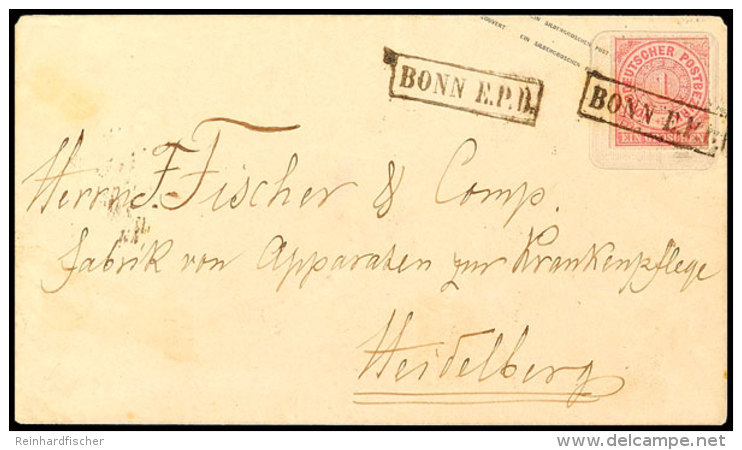 EIN SILBERGROSCHEN POST
COUVERT EIN SILBERGROSCHEN
BONN E.P.B.
BONN E.P.B.
DEUTSCHER POSTBE
1
EIN GROSCHEN
Herrn F. Fischer & Comp.
Fabrik von Apparaten zur Krankenpflege
Heidelberg
Reinhardfischer
delcampe.net